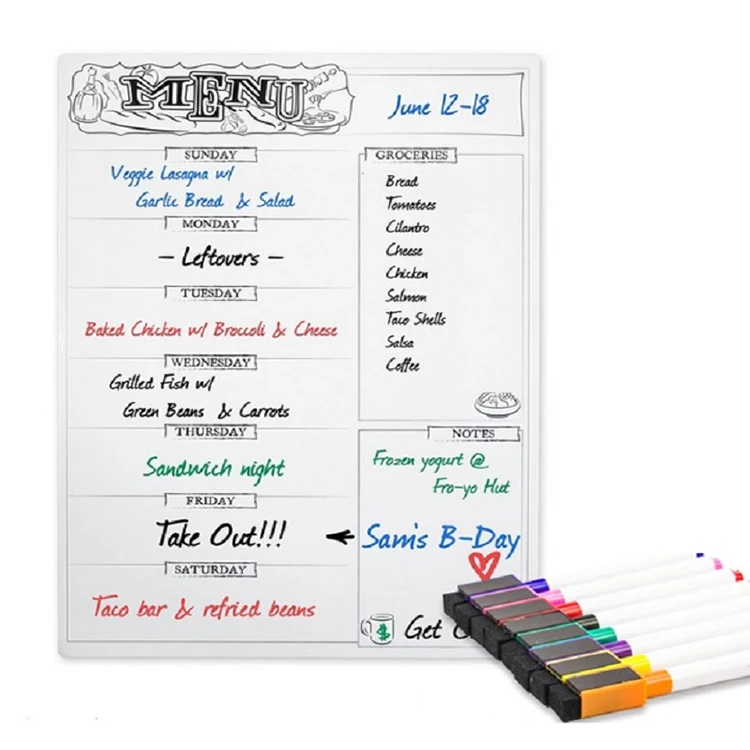 MENU
June 12-18
SUNDAY
Veggie Lasagna w/
Garlic Bread & Salad
MONDAY
- Leftovers -
TUESDAY
Baked Chicken w/ Broccoli & Cheese
WEDNESDAY
Grilled Fish w/
Green Beans & Carrots
THURSDAY
Sandwich night
FRIDAY
Take Out!!!
SATURDAY
Taco bar & refried beans
GROCERIES
Bread
Tomatoes
Cilantro
Cheese
Chicken
Salmon
Taco Shells
Salsa
Coffee
NOTES
Frozen yogurt @
Fro-yo Hut
Sam's B-Day
$
Get